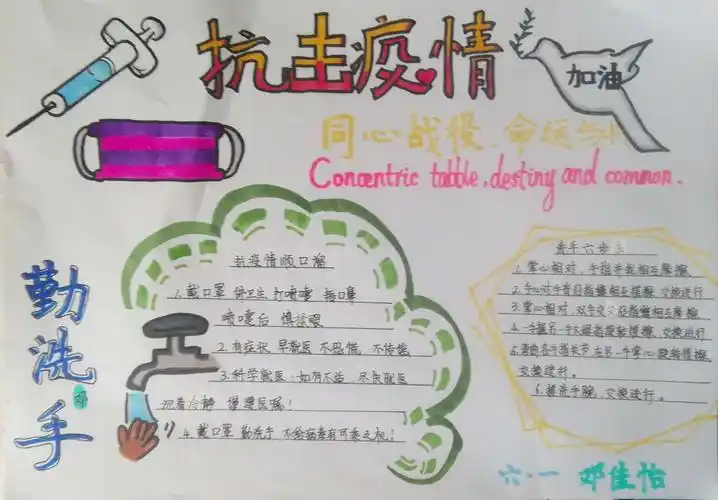 抗击疫情
加油
同心战役、命运与
Concentric tabble,destiny and common.
勤洗手
抗疫情顺口溜
1.戴口罩 讲卫生 打喷嚏 捂口鼻
喷嚏后 慎揉眼
2.有症状 早就医 不恐慌 不传谣
3.科学就医 如有不适 尽快就医
沉着冷静 谨遵医嘱!
4.戴口罩 勤洗手 不给病毒有可乘之机!
洗手六步
1.掌心相对,手指并拢相互摩擦
2.手心对手背沿指缝相互搓擦,交换进行
3.掌心相对,双手交叉沿指缝相互摩擦
4.一手握另一手大拇指旋转搓擦,交换进行
5.弯曲各手指关节在另一手掌心旋转搓擦,
交换进行。
6.搓洗手腕,交换进行。
六·一 邓佳怡